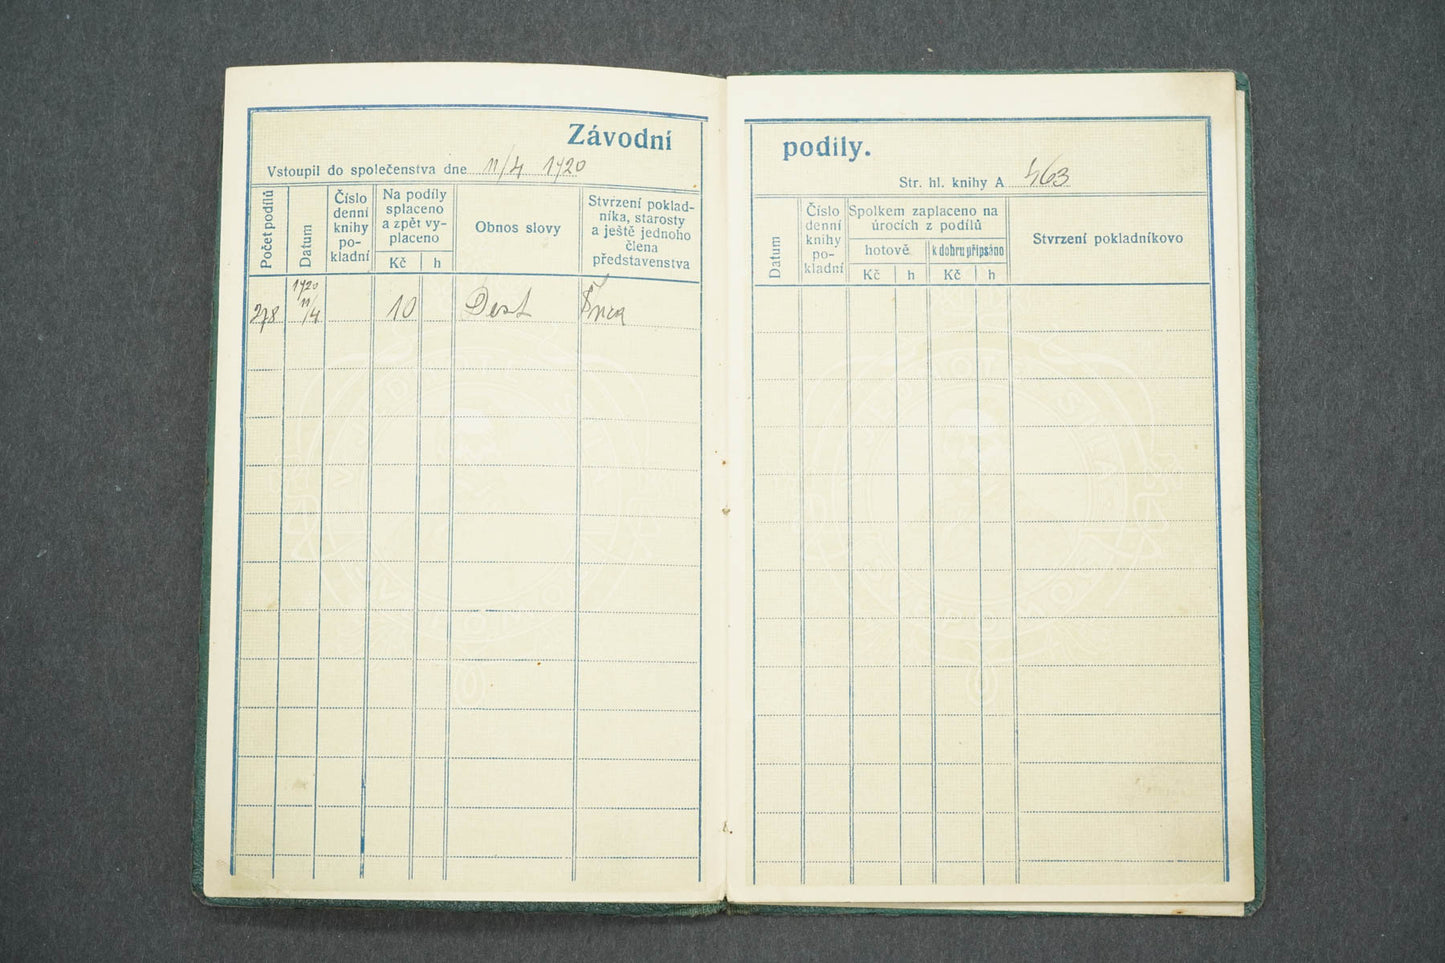 Závodní
Vstoupil do společenstva dne 11/4 1920
Počet podílů
Datum
Číslo
denní
knihy
po-
kladní
Na podíly
splaceno
a zpět vy-
placeno
Kč h
Obnos slovy
Stvrzení poklad-
níka, starosty
a ještě jednoho
člena
představenstva
1920
11/4
278 10 Deset
podíly.
Str. hl. knihy A 463
Datum
Číslo
denní
knihy
po-
kladní
Spolkem zaplaceno na
úrocích z podílů
hotově k dobru připsáno
Kč h Kč h
Stvrzení pokladníkovo
VÝCHOD